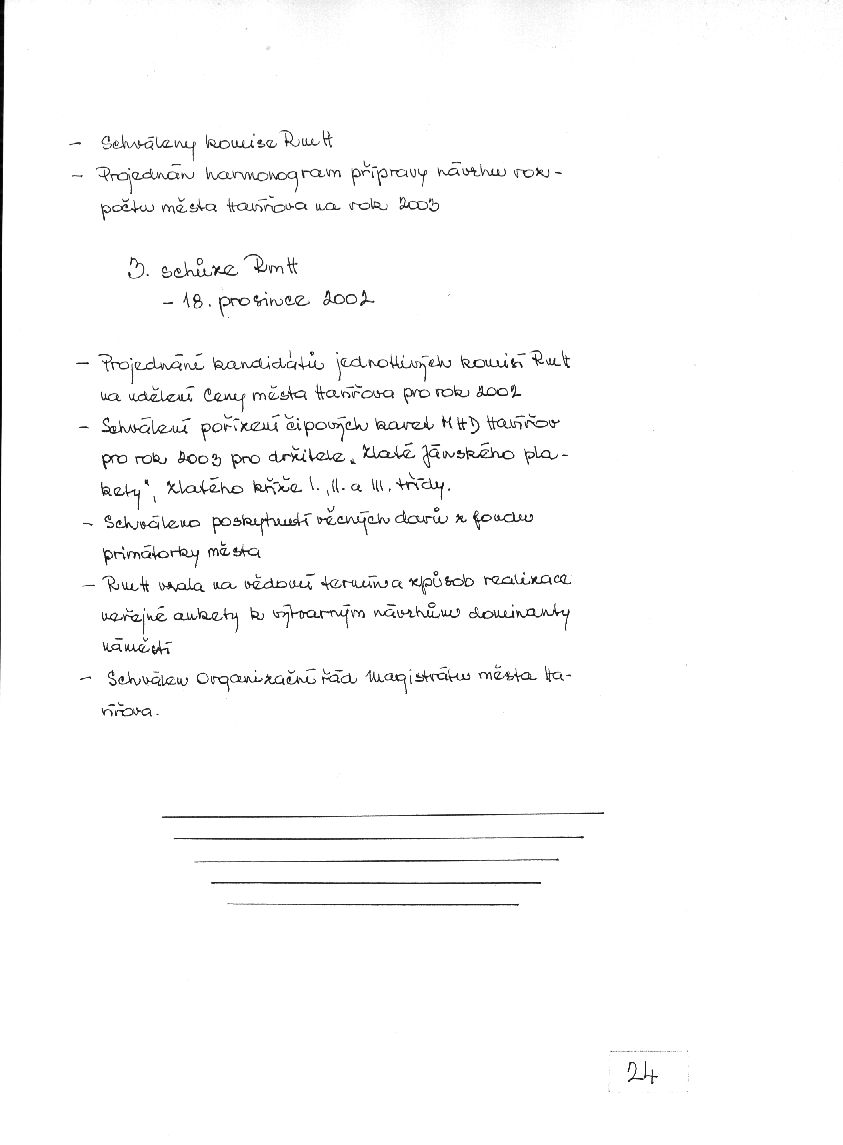 - Schváleny komise RmH
- Projednán harmonogram přípravy návrhu roz-
počtu města Havířova na rok 2003
3. schůze RmH
- 18. prosince 2002
- Projednání kandidátů jednotlivých komisí RmH
na udělení Ceny města Havířova pro rok 2002
- Schválení pořízení čipových karet MHD Havířov
pro rok 2003 pro držitele „Zlaté Jánského pla-
kety", Zlatého kříže I., II. a III. třídy.
- Schváleno poskytnutí věcných darů z fondu
primátorky města
- RmH vzala na vědomí termín a způsob realizace
veřejné ankety k výtvarným návrhům dominanty
náměstí
- Schválen Organizační řád Magistrátu města Ha-
vířova.
24